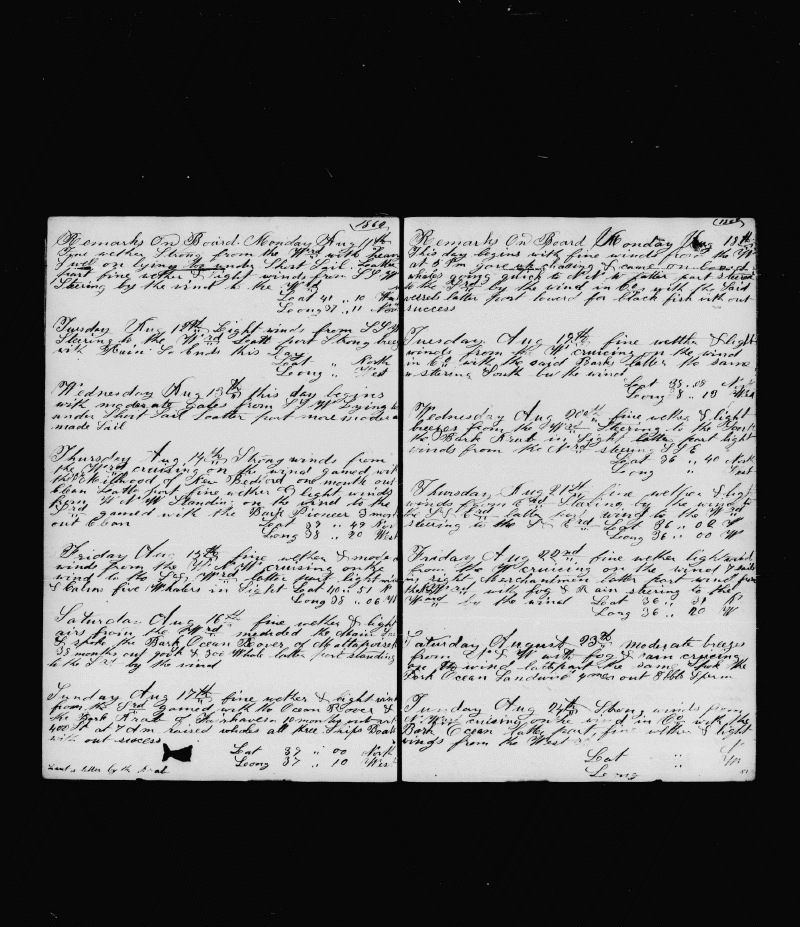 1860
Remarks On Board Monday Aug 11th
Fine wether Strong from the W'rd with heavy
Swell on lying under Short Sail Latter
part fine wether & light winds from SSW
Steering by the wind to the W'th
Laat 41 " 10
Loong 37 " 11 Nor
Tuesday Aug 12th Light winds from SS
Steering to the W'rd Laatt part Strong breez
with Rain So Ends this Day
Laat " North
Loong " West
Wednesday Aug 13th this day begins
with moderate Gales from SSW Lying to
under Short Sail Laatter part more modera
made Sail
Thursday Aug 14th Strong winds from
the W'rd cruising on the wind gamed with
the Milhood of New Bedford one month out
Clean Latter part fine wether & light winds
from W N W Standing on the wind to the
gamed with the Bark Pioneer 3 mont
out Clean
Laat 39 " 49 Nor
Loong 38 " 20 West
Friday Aug 15th fine wether & moder
winds from the W N W cruising on the
wind to the W'rd Latter part light win
& Calm five Whalers in Sight Laat 40 " 51 N
Long 38 " 06 W
Saturday Aug 16th fine wether & light
airs from the W'rd mended the chain
& spoke the Bark Ocean Rover of Mattapoisett
38 months out York & 300 Whale latter part standing
to the by the wind
Sunday Aug 17th fine wether & light win
from the S'rd gamed with the Ocean Rover &
the Bark Krat of Fairhaven 10 months out
400 at 7 A m raised whales all three Ships Boats
with out success
Laat 39 " 00 North
Loong 37 " 10 West
Sent a letter by the Krat
Remarks On Board Monday Aug 18th
This day begins with fine winds from the W
at 1 Pm gave up chasing & came on board
whales going quick to latter part steered
to the by the wind in Co with the Said
vessels latter part lowerd for black fish with out
success
Tuesday Aug 19th fine wether & light
winds from the W cruising on the wind
in Co with the said Barks latter the same
steering South by the wind
Laat 38 " 08 N
Loong 8 " 13 West
Wednesday Aug 20th fine wether & light
breezes from the W'rd Steering to the
the Bark Krat in Sight latter part light
winds from the N'rd steering S S E
Laat 36 " 40 North
Long " West
Thursday Aug 21st fine wether & light
winds Staring by the wind
to S & E'rd latter part wind to the W'rd
steering to the S E'rd Laat 36 " 02 N
Loong 36 " 00 W
Friday Aug 22nd fine wether light wind
from the W cruicing on the wind
in sight Merchantmen latter part wind from
the W'rd with fog & Rain steering to the
W'ard by the wind Laat 36 " 31 N
Long 36 " 20 W
Saturday August 23th moderate breezes
from S W with fog & rain cruising
on the wind latt part the same Spok the
Bark Ocean out 8 bbls Sperm
Sunday Aug 24th Strong winds from
N West cruising on the wind in Co with the
Bark Ocean latter part fine wether & light
winds from the West
Laat " N
Long " W